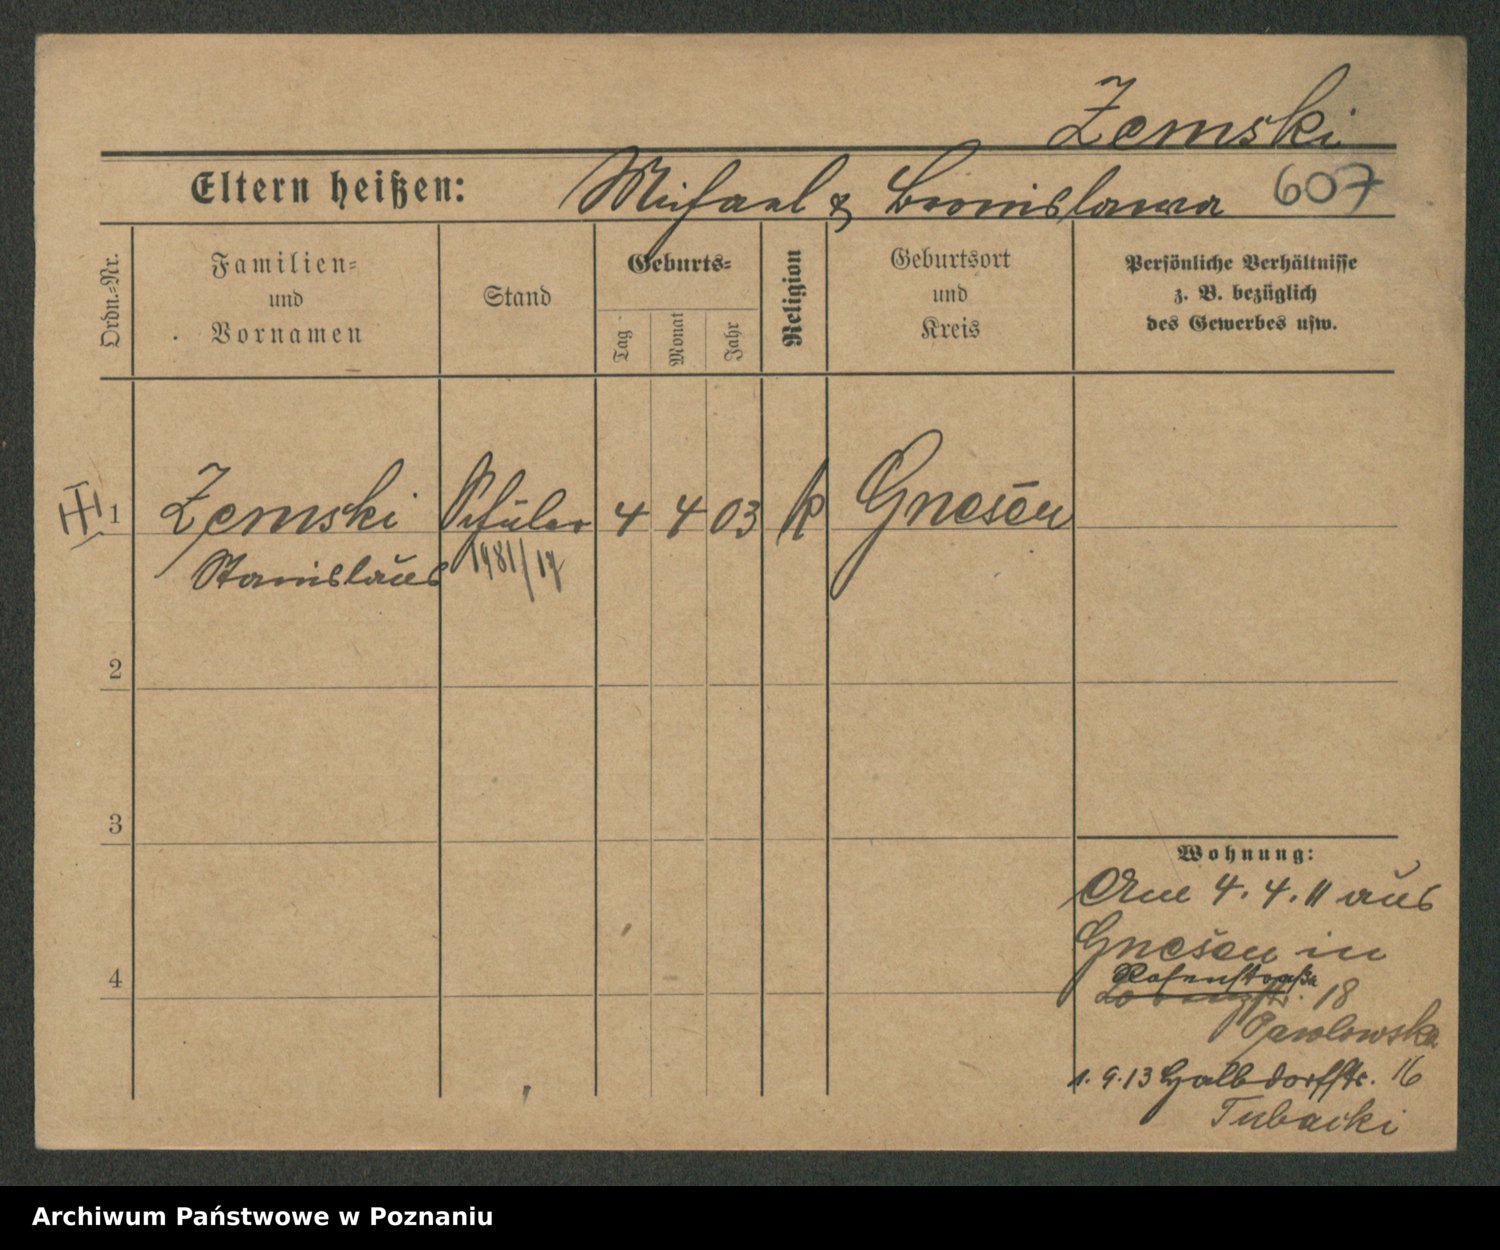 Zemski
Eltern heißen: Michael & Bronislawa 607
Ordn.-Nr.
Familien-
und
Vornamen
Stand
Geburts-
Tag
Monat
Jahr
Religion
Geburtsort
und
Kreis
Persönliche Verhältnisse
z. B. bezüglich
des Gewerbes usw.
1 Zemski Schüler 4 4 03 k Gnesen
Stanislaus 1981/17
2
3
4
Wohnung:
Am 4. 4. 11 aus
Gnesen in
Rosenstraße
18
Pawlowska
1. 9. 13 Halbdorfstr. 16
Tubacki
Archiwum Państwowe w Poznaniu